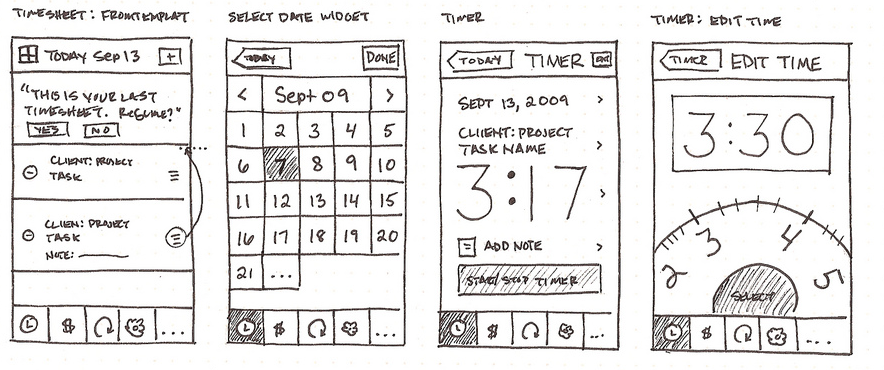 TIMESHEET: FRONTEMPLAT
TODAY Sep 13
+
"THIS IS YOUR LAST
TIMESHEET. RESUME?"
YES NO
CLIENT: PROJECT
TASK
CLIEN: PROJECT
TASK
NOTE:
$
...
SELECT DATE WIDGET
TODAY
DONE
< Sept 09 >
1 2 3 4 5
6 7 8 9 10
11 12 13 14 15
16 17 18 19 20
21 ...
$
...
TIMER
TODAY
TIMER
SEPT 13, 2009 >
CLIENT: PROJECT
TASK NAME >
3:17 >
ADD NOTE >
START/STOP TIMER
$
...
TIMER: EDIT TIME
TIMER
EDIT TIME
3:30
2 3 4 5
SELECT
$
...